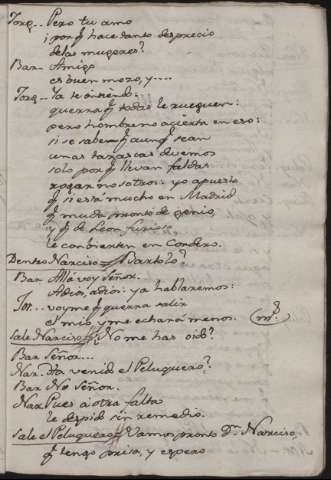 Torq.. Pero tu amo
¿por q.e hace tanto desprecio
de las mugeres?
Bar.. Amigo
es buen mozo, y....
Torq.. Ya te entiendo:
querra q.e todas le rueguen:
pero hombre no acierta en eso:
si se saben q.e aunq.e sean
unas tarascas devemos
solo por q.e llevan faldas
rogar nosotros: yo apuesto
q.e si está mucho en Madrid
q.e muda pronto de genio,
y q.e de Leon furioso
le combierten en Cordero.
Dentro Narciso = Bartolo?
Bar. Allá voy Señor.
Adios, adios: ya hablaremos:
Tor.. voyme q.e querra salir
el mio, y me echará menos.
Sale Narciso = No me has oido?
Bar Señor...
Nar. Ha venido el Peluquero?
Bar No Señor.
Nar Pues á otra falta
le despido sin remedio.
Sale el Peluquero = Vamos pronto D.n Narciso,
q.e tengo prisa, y espero